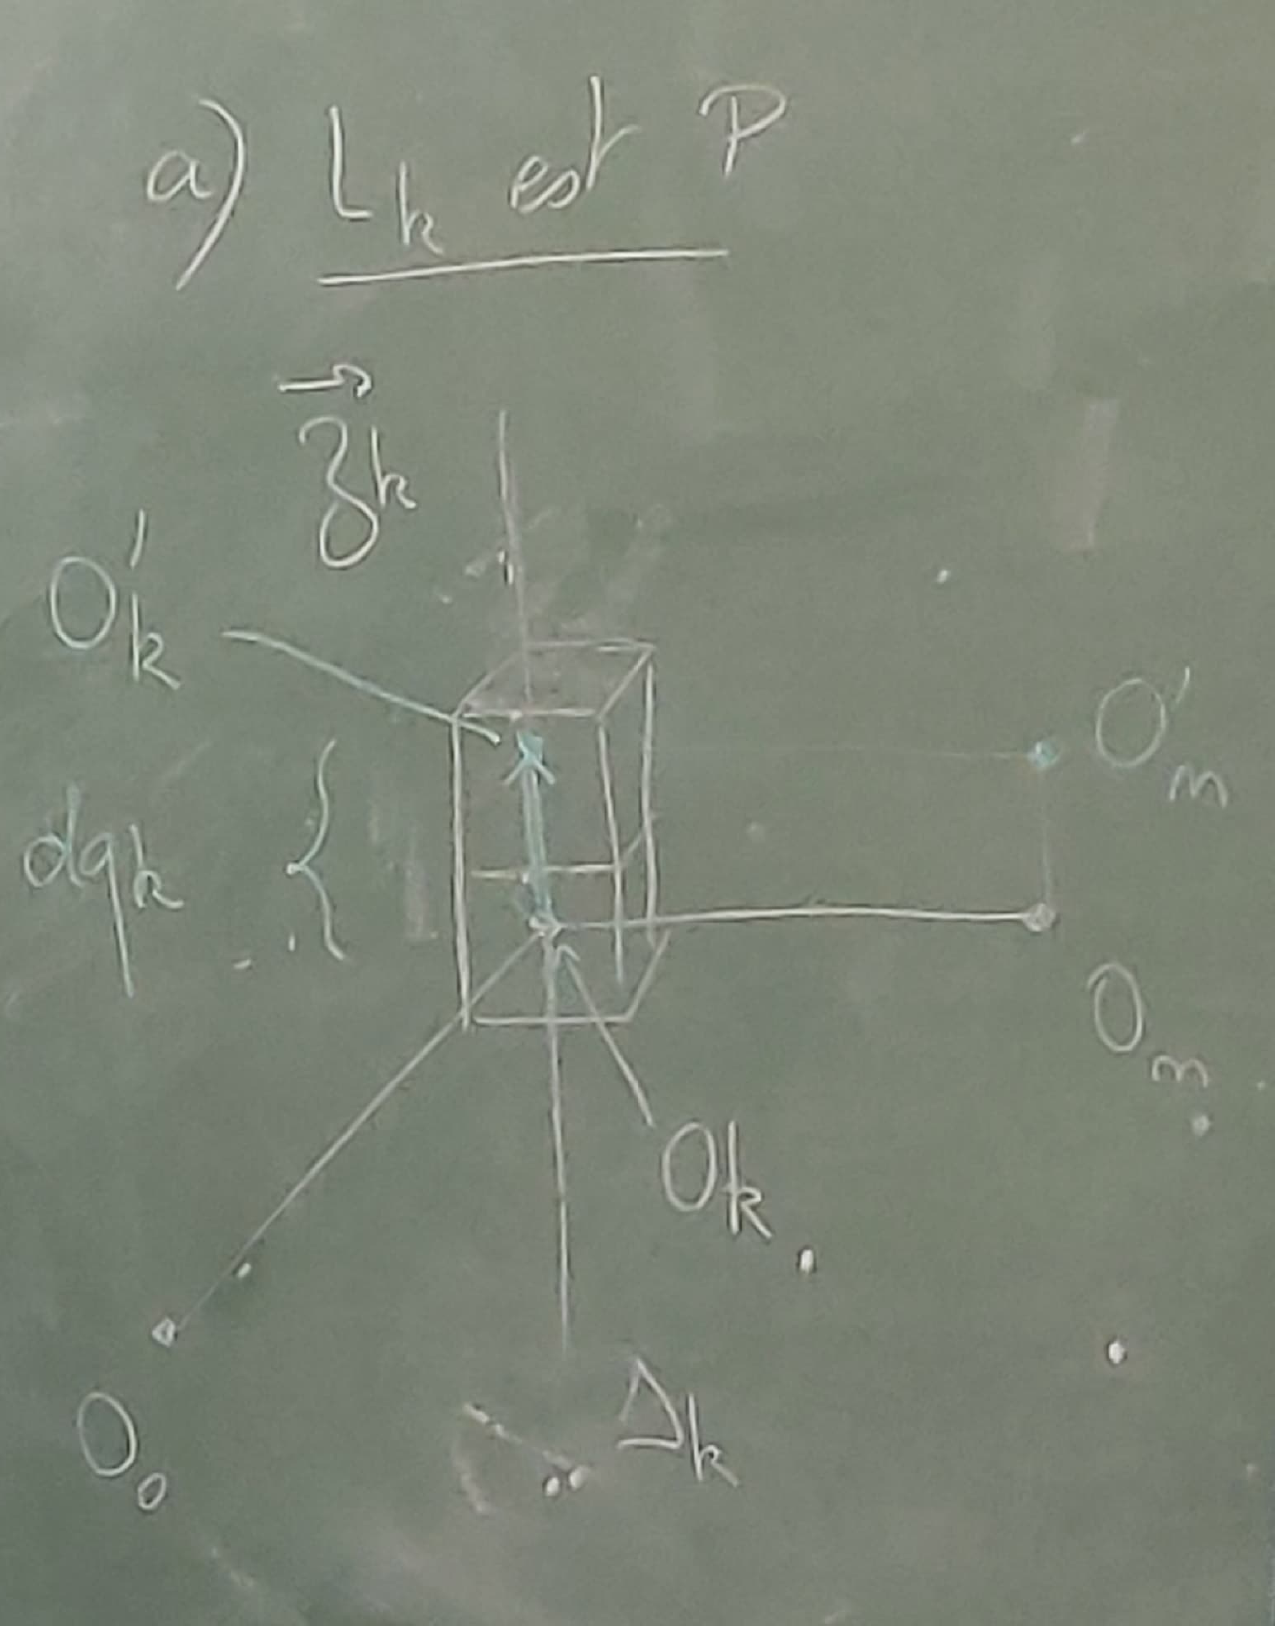 a) Lk est P
→
zk
O'k
O'm
dqk {
Om
Ok
Δk
O0